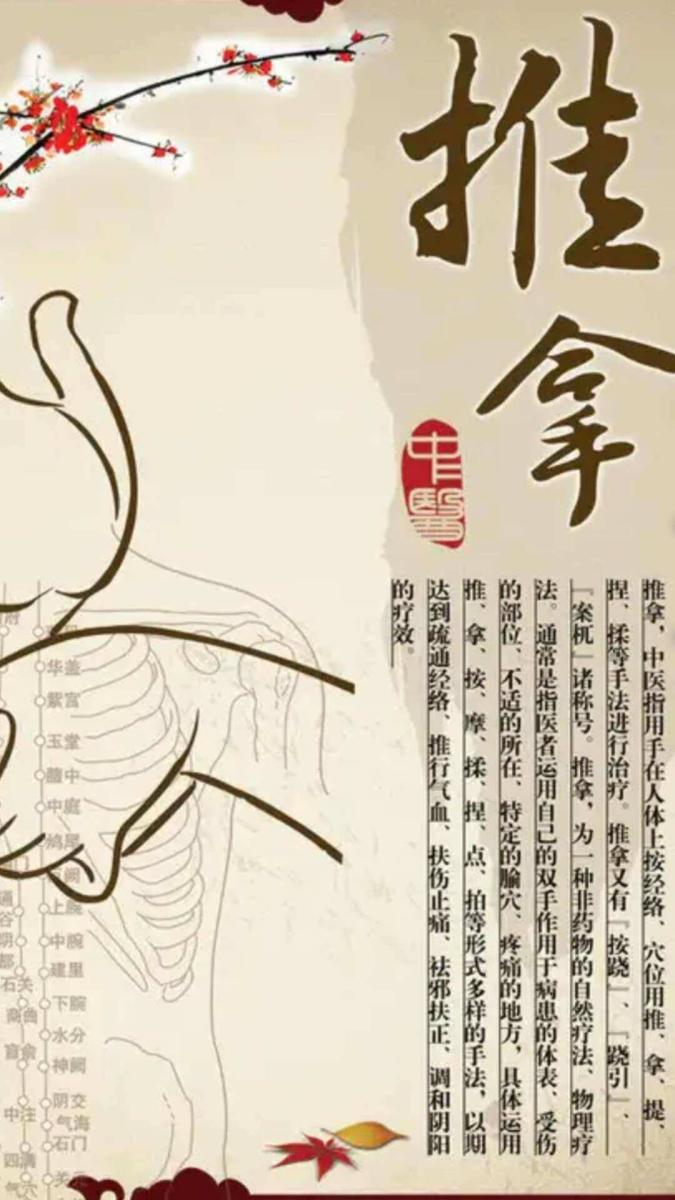 推拿
中醫
推拿，中医指用手在人体上按经络、穴位用推、拿、提、
捏、揉等手法进行治疗。推拿又有『按跷』、『跷引』、
『案杌』诸称号。推拿，为一种非药物的自然疗法、物理疗
法。通常是指医者运用自己的双手作用于病患的体表、受伤
的部位、不适的所在、特定的腧穴、疼痛的地方，具体运用
推、拿、按、摩、揉、捏、点、拍等形式多样的手法，以期
达到疏通经络、推行气血、扶伤止痛、祛邪扶正、调和阴阳
的疗效。
华盖
紫宫
玉堂
膻中
中庭
鸠尾
阙
上脘
中脘
建里
下脘
水分
神阙
阴交
气海
石门
关元
通
谷
阴
都
石关
商曲
肓俞
中注
四满
气穴